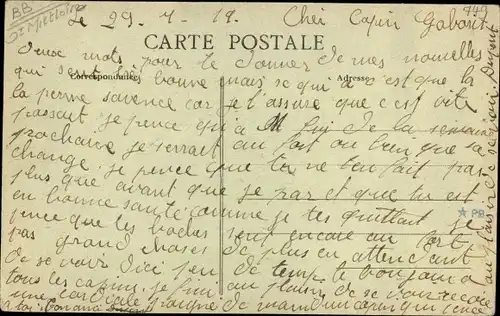 BB
le 29-7-19. Cher Copin Gaborit
CARTE POSTALE
Correspondance Adresse
Deux mots pour te donner de mes nouelles
qui sont bonne mais se qui a c'est que la
perme savence car je t'assure que c'est vite
passait je pence qu'a la fin de la semaine
prochaine je serrait au fort ou bien que sa
change. je pence que ter ne ten fait pas
plus que avant que je par et que tu est
en bonne santé comme je tes quittait je
pence que les boches sont encore au fort
pas grand choses de plus en attendant
de se voir d'ici peu de temps le bonjour a
tous les copins. je fini au plaisir de se voir
une cordiale poigné de main d'un copin qui pence
PB